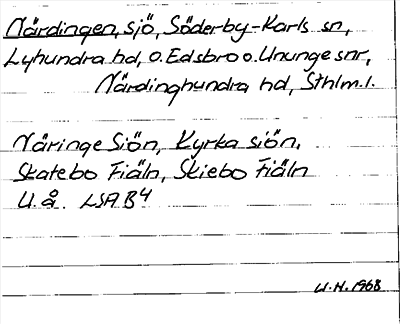 Närdingen, sjö, Söderby-Karls sn,
Lyhundra hd, o. Edsbro o. Ununge snr,
Närdinghundra hd, Sthlm.l.
Näringe Siön, Kyrka siön.
Skatebo Fiäln, Skiebo Fiäln
U.å. LSA B4
U.H. 1968